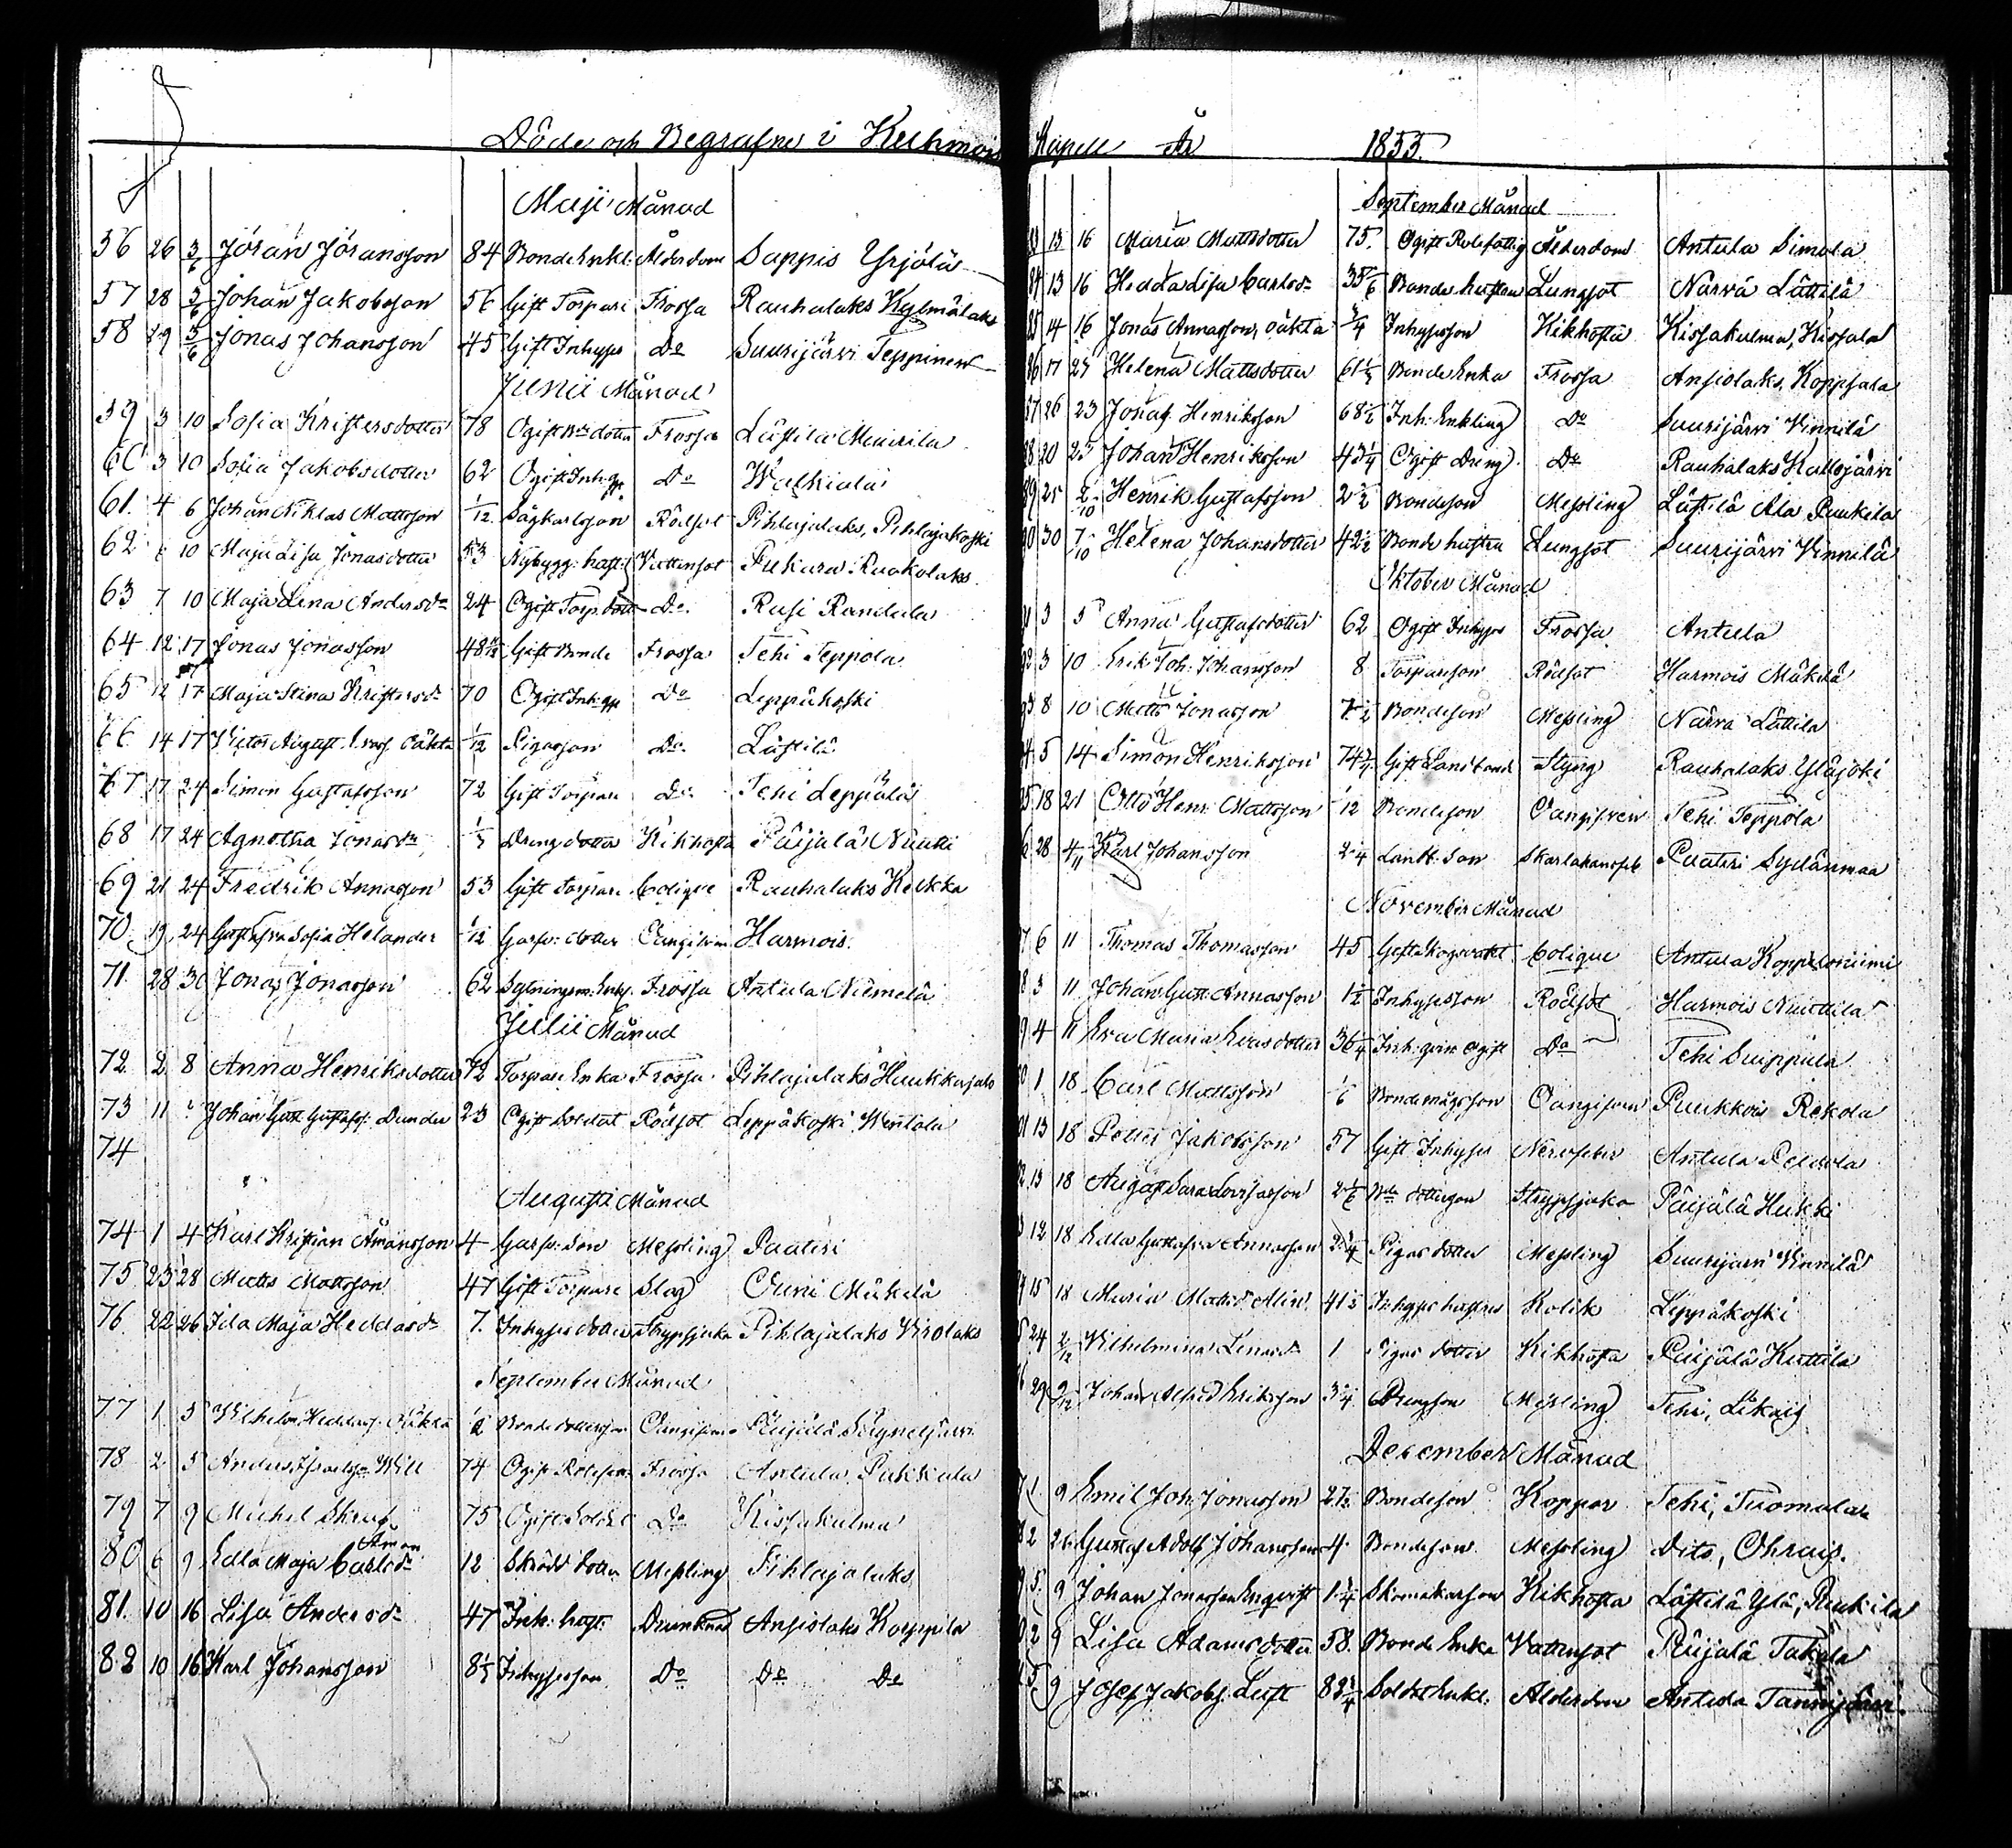 Döde och Begrafne i Kuhmois
Maji Månad
56 26 3/6 Jöran Jöransson 84 Bonde Enkl. Ålderdom Sappis Yrjölä
57 28 3/6 Johan Jakobsson 56 Gift Torpare Frossa Rauhalaks Kylmälaks
58 29 3/6 Jonas Johansson 45 Gift Inhyses Do Suurijärvi Teppinen
Junii Månad
59 3 10 Sofia Kristersdotter 78 Ogift dotter Frossa Lästilä Maurila
60 3 10 Sofia Jakobsdotter 62 Ogift Inh. Do Walkiala
61 4 6 Johan Niklas Mattsson 1/12 Sågkarlsson Rödsot Pihlajalaks, Pihlajakoski
62 6 10 Maja Lisa Jonasdotter 53 Nybygg. hust. Vattensot Pukara Ruokolaks
63 7 10 Maja Lena Andersdr 24 Ogift Torp. dott Do. Rusi Randala
64 12 17 Jonas Jonasson 48 Gift Bonde Frossa Tehi Teppola
65 12 17 Maja Stina Kristersdr 70 Ogift Inh. Do Leppäkoski
66 14 17 Victor August oäkta 1/12 Pigasson Do. Lästilä
67 17 24 Simon Gustafsson 72 Gift Torpare Do. Tehi Leppälä
68 17 24 Agnetha Jonasdr Dreng dotter Kikhosta Päijälä Nuutti
69 21 24 Fredrik Annasson 53 Gift Torpare Colique Rauhalaks Keukka
70 19 24 Gustafva Sofia Helander 1/12 Garfv. dotter Harmois
71 28 30 Jonas Jonasson 62 Enkl. Frossa Antula Niemelä
Julii Månad
72 2 8 Anna Henriksdotter 72 Torpare Enka Frossa Pihlajalaks Haukkajalo
73 11 Johan Gust. Gustafss. Dunder 23 Ogift Soldat Rödsot Leppäkoski Wentola
74
Augusti Månad
74 1 4 Karl Kristian Åmansson 4 Garfv. Son Messling Paateri
75 23 28 Matts Mattsson 47 Gift Torpare Slag Ouni Mäkelä
76 22 26 Ida Maja Heddasdr 7. Inhyses dotter Strypsjuka Pihlajalaks Virolaks
September Månad
77 1 5 Wilhelm Heddass. Oäkta 1/2 Bonde dotterson Päijälä
78 2 5 Anders Will 74 Ogift Frossa Antula Pukkala
79 7 9 Michel Skruf 75 Ogift Soldat Do Kissakulma
Åman
80 6 9 Edla Maja Carlsdr 12 Skrädd. dotter Messling Pihlajalaks
81. 10 16 Lisa Andersdr 47 Inh. hust. Drunknad Ansiolaks Koppila
82 10 16 Karl Johansson 8 1/3 Inhysesson Do Do Do
Kapell År 1855.
September Månad
83 13 16 Maria Mattsdotter 75. Ogift Rotefattig Ålderdom Antula Simola
84 13 16 Hedda Lisa Carlsdr 35 Bonde hustru Lungsot Närvä Lättilä
85 14 16 Jonas Annasson, oäkta 3/4 Inhysesson Kikhosta Kissakulma, Kissala
86 17 23 Helena Mattsdotter 61 1/3 Bonde Enka Frossa Ansiolaks, Koppsala
87 26 23 Jonas Henriksson 68 1/2 Inh. Enkling Do Suurijärvi Vinnilä
88 20 23 Johan Henriksson 43 1/4 Ogift Dreng Do Rauhalaks Kallojärvi
89 25 2/10 Henrik Gustafsson 2 1/2 Bondeson Messling Lästilä Ala Puukila
90 30 7/10 Helena Johansdotter 42 1/2 Bonde hustru Lungsot Suurijärvi Vinnilä
Oktober Månad
91 3 5 Anna Gustafsdotter 62 Ogift Inhyses Frossa Antula
92 3 10 Erik Joh. Johansson 8 Torparson Rödsot Harmois Mäkelä
93 8 10 Matts Jonasson 7 1/2 Bondeson Messling Närvä Lättilä
94 5 14 Simon Henriksson 74 Gift Landbonde Styng Rauhalaks Yläjoki
95 18 21 Otto Henr. Mattsson 1/12 Bondeson Tehi Teppola
96 28 4/11 Karl Johansson 2 1/4 Landb. Son Skarlakansfeb Paateri Sydänmaa
November Månad
97 6 11 Thomas Thomasson 45 Gift Skogsvakt. Colique Antula Koppeloniemi
98 3 11 Johan Gust. Annasson 1 1/2 Inhysesson Rödsot Harmois Nuuttila
99 4 11 Eva Maria Evasdotter 36 1/4 Inh. qvin. ogift Do Tehi Suippula
1 18 Carl Mattsson 1/6 Bondemågsson Puukkois Rekola
13 18 Petter Jakobsson 57 Gift Inhyses Nervfeber Antula Peldola
13 18 August 2 1/6 dotterson Strypsjuka Päijälä Hukki
12 18 Edla Gustafva Annasson 2 1/4 Pigas dotter Messling Suurijärvi Vinnilä
15 18 Maria Mattsdr Alin 41 1/2 Inhyses hustru Kolik Leppäkoski
24 2/12 Wilhelmina Linasdr 1 Pigas dotter Kikhosta Päijälä Kuttila
29 2/12 Johan Alfred Eriksson 3 1/4 Drengson Messling Tehi,
December Månad
1 9 Emil Joh. Jonasson 2 1/2 Bondeson Koppor Tehi, Tuomala
2 Gustaf Adolf Johansson 4 Bondeson Messling Dito, Ohrais.
5 9 Johan Jonasson Engqvist 1 1/4 Skomakarson Kikhosta Lästilä Ylä, Puukila
2 9 Lisa Adamsdotter 58. Bonde Enka Vattusot Päijälä Takala
5 9 Josef Jakobs. Luft 83 3/4 Soldat Enkl. Ålderdom Antula